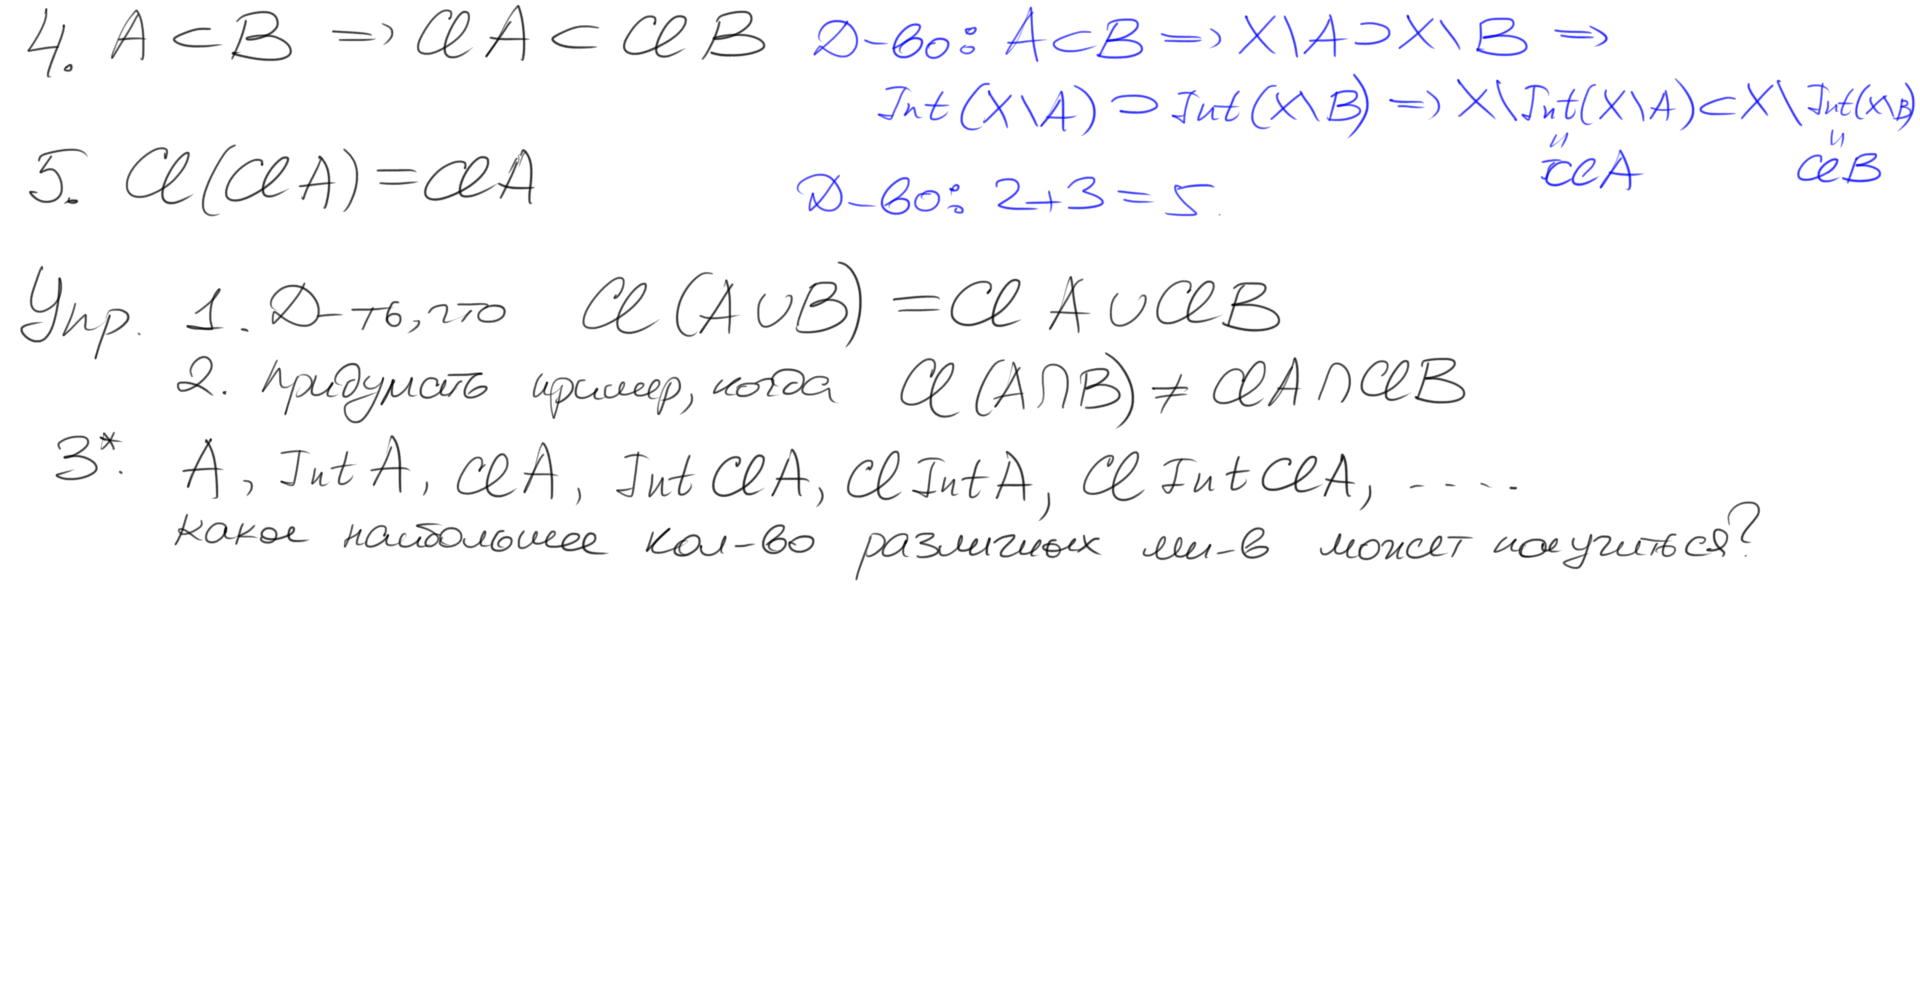 4. A ⊂ B => Cl A ⊂ Cl B Д-во: A ⊂ B => X\A ⊃ X\B =>
Int (X\A) ⊃ Int (X\B) => X\Int(X\A) ⊂ X\Int(X\B)
" "
Cl A Cl B
5. Cl (Cl A) = Cl A Д-во: 2+3=5.
Упр. 1. Д-ть, что Cl (A ∪ B) = Cl A ∪ Cl B
2. Придумать пример, когда Cl (A ∩ B) ≠ Cl A ∩ Cl B
3*. A, Int A, Cl A, Int Cl A, Cl Int A, Cl Int Cl A, ....
какое наибольшее кол-во различных мн-в может получиться?